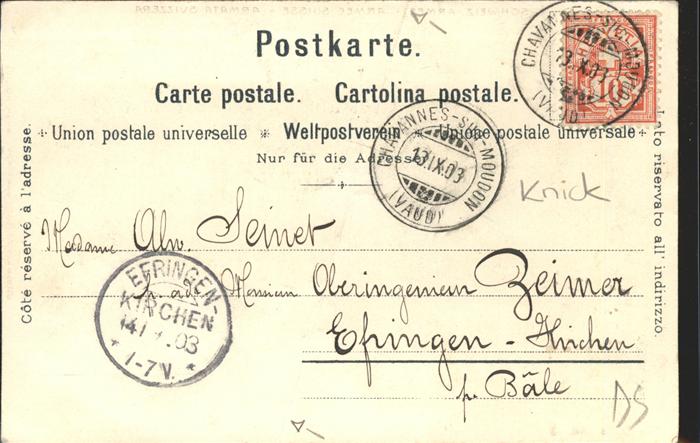 SCHWEIZ. ARMEE - ARMÉE SUISSE - ARMATA SVIZZERA
Postkarte.
Carte postale. Cartolina postale.
Union postale universelle * Weltpostverein * Unione postale universale
Nur für die Adresse.
Côté réservé à l'adresse.
Lato riservato all' indirizzo.
CHAVANNES-S/-MOUDON
13.IX.03
(VAUD)
10
CHAVANNES-SUR-MOUDON
13.IX.03
(VAUD)
Knick
Madame Alw. Seinet
Monsieur Oberingenieur Zeimer
Efringen-Kirchen
pr Bâle
EFRINGEN-
KIRCHEN
14 03
* 1-7V. *
DS